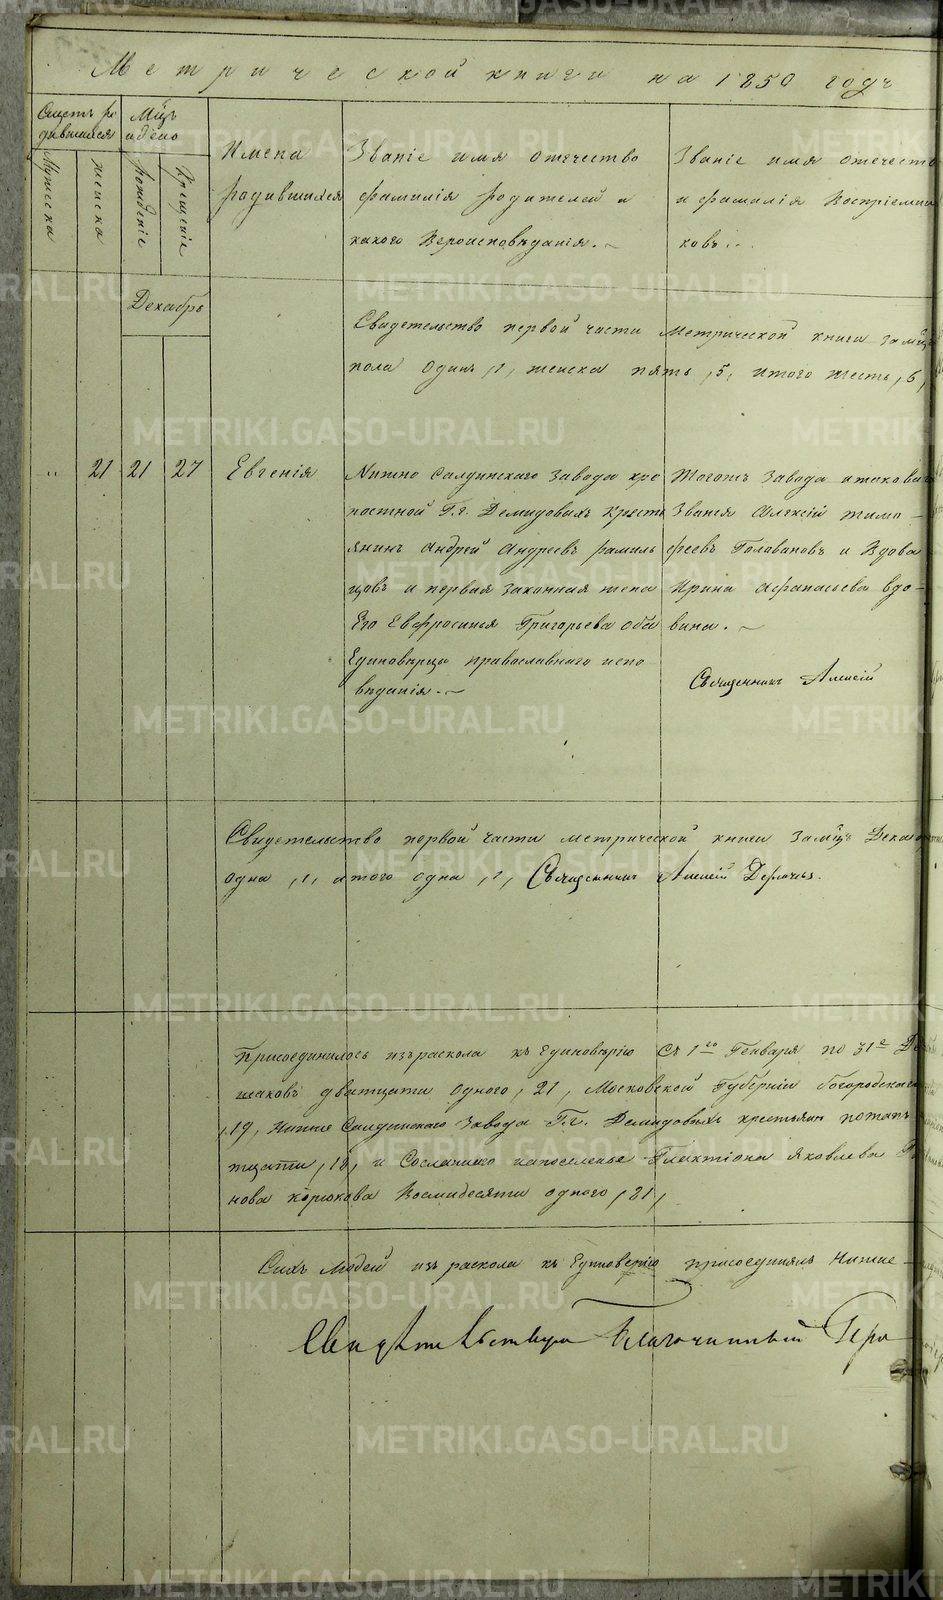 Метрической книги на 1850 годъ
Счетъ ро
дившихся
Мцъ
и день
Мужеска
женска
рожденіе
Крещеніе
Имена
родившихся
Званіе имя отечество
фамилія родителей и
какого Вероисповѣданія.
Званіе имя отечество
и фамилія Воспріемни
ковъ.
Декабрь
Свидетельство первой части Метрической книги за мцъ
пола Одинъ, 1, женска пять, 5, итого шесть, 6,
21 21 27 Евгенія
Нижно Салдинскаго завода кре
постной Г.г. Демидовыхъ Кресть
янинъ Андрей Андреевъ
и первая законная жена
Его Евфросинья Григорьева оба
Единоверцы православнаго испо
вѣданія.
Тогожъ Завода и таковаго
Званія Алексій Тимо
феевъ Головановъ и Вдова
Ирина Афанасьева вдо
вина.
Священникъ Алексій
Свидетельство первой части метрической книги за мцъ
одна, 1, итого одна, 1, Священникъ Алексій
Присоединилось изъ раскола къ Единоверію Съ 1го Генваря по 31е
дватцати одного, 21, Московской Губерніи
19, Нижне Салдинскаго Завода Г.г. Демидовыхъ крестьянъ
и Сосланного напоселенье Галактіона Яковлева
нова Восмидесяти одного, 81,
Сихъ Людей изъ раскола къ Единоверію присоединялъ Нижне
Свидѣтельствую Благочинный
METRIKI.GASO-URAL.RU